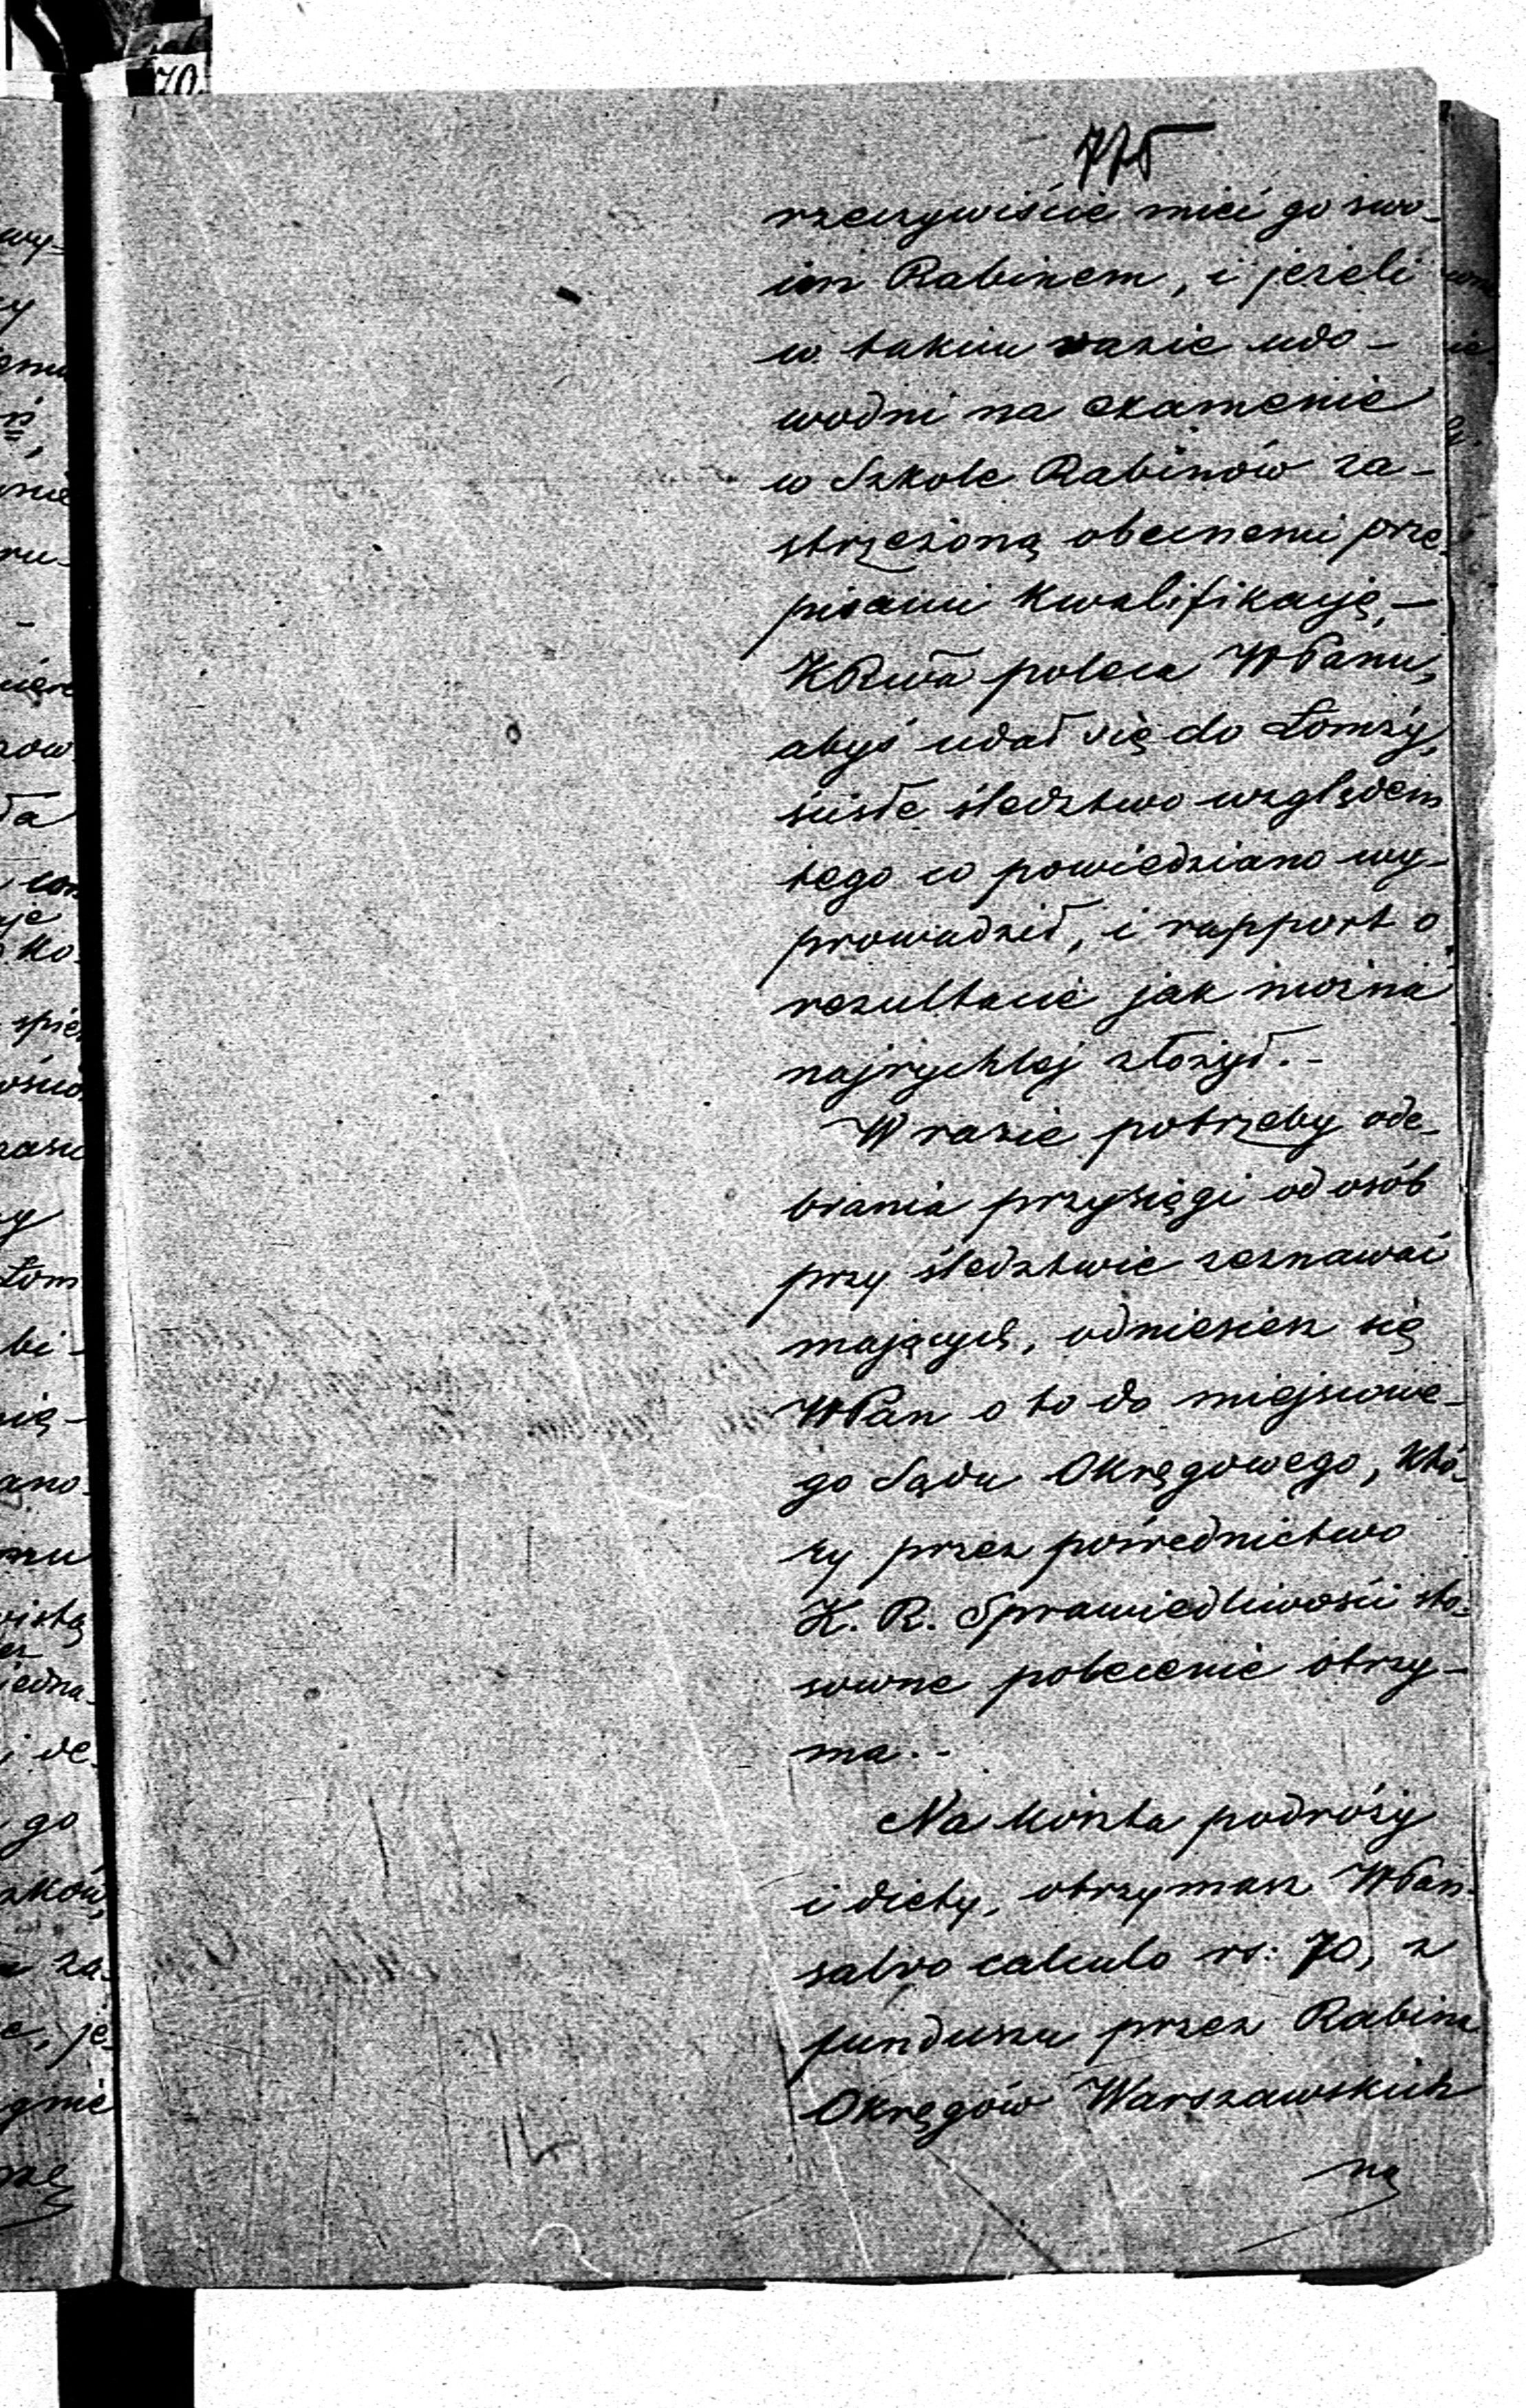 70.
rzeczywiście mieć go swo-
im Rabinem, i jeżeli
w takim razie udo-
wodni na examenie
w Szkole Rabinów za-
strzeżoną obecnemi prze-
pisami kwalifikacyę,-
KRwa poleca WPanu,
abyś udał się do Łomży,
ścisłe śledztwo względem
tego co powiedziano wy-
prowadził, i rapport o
rezultacie jak można
najrychlej złożył.-
W razie potrzeby ode-
brania przysięgi od osób
przy śledztwie zeznawać
mających, odniesiesz się
WPan o to do miejscowe-
go Sądu Okręgowego, któ-
ry przez pośrednictwo
K. R. Sprawiedliwości sto-
sowne polecenie otrzy-
ma.-
Na koszta podróży
i diety, otrzymasz WPan
salvo calculo rs: 70, z
funduszu przez Rabina
Okręgów Warszawskich
na